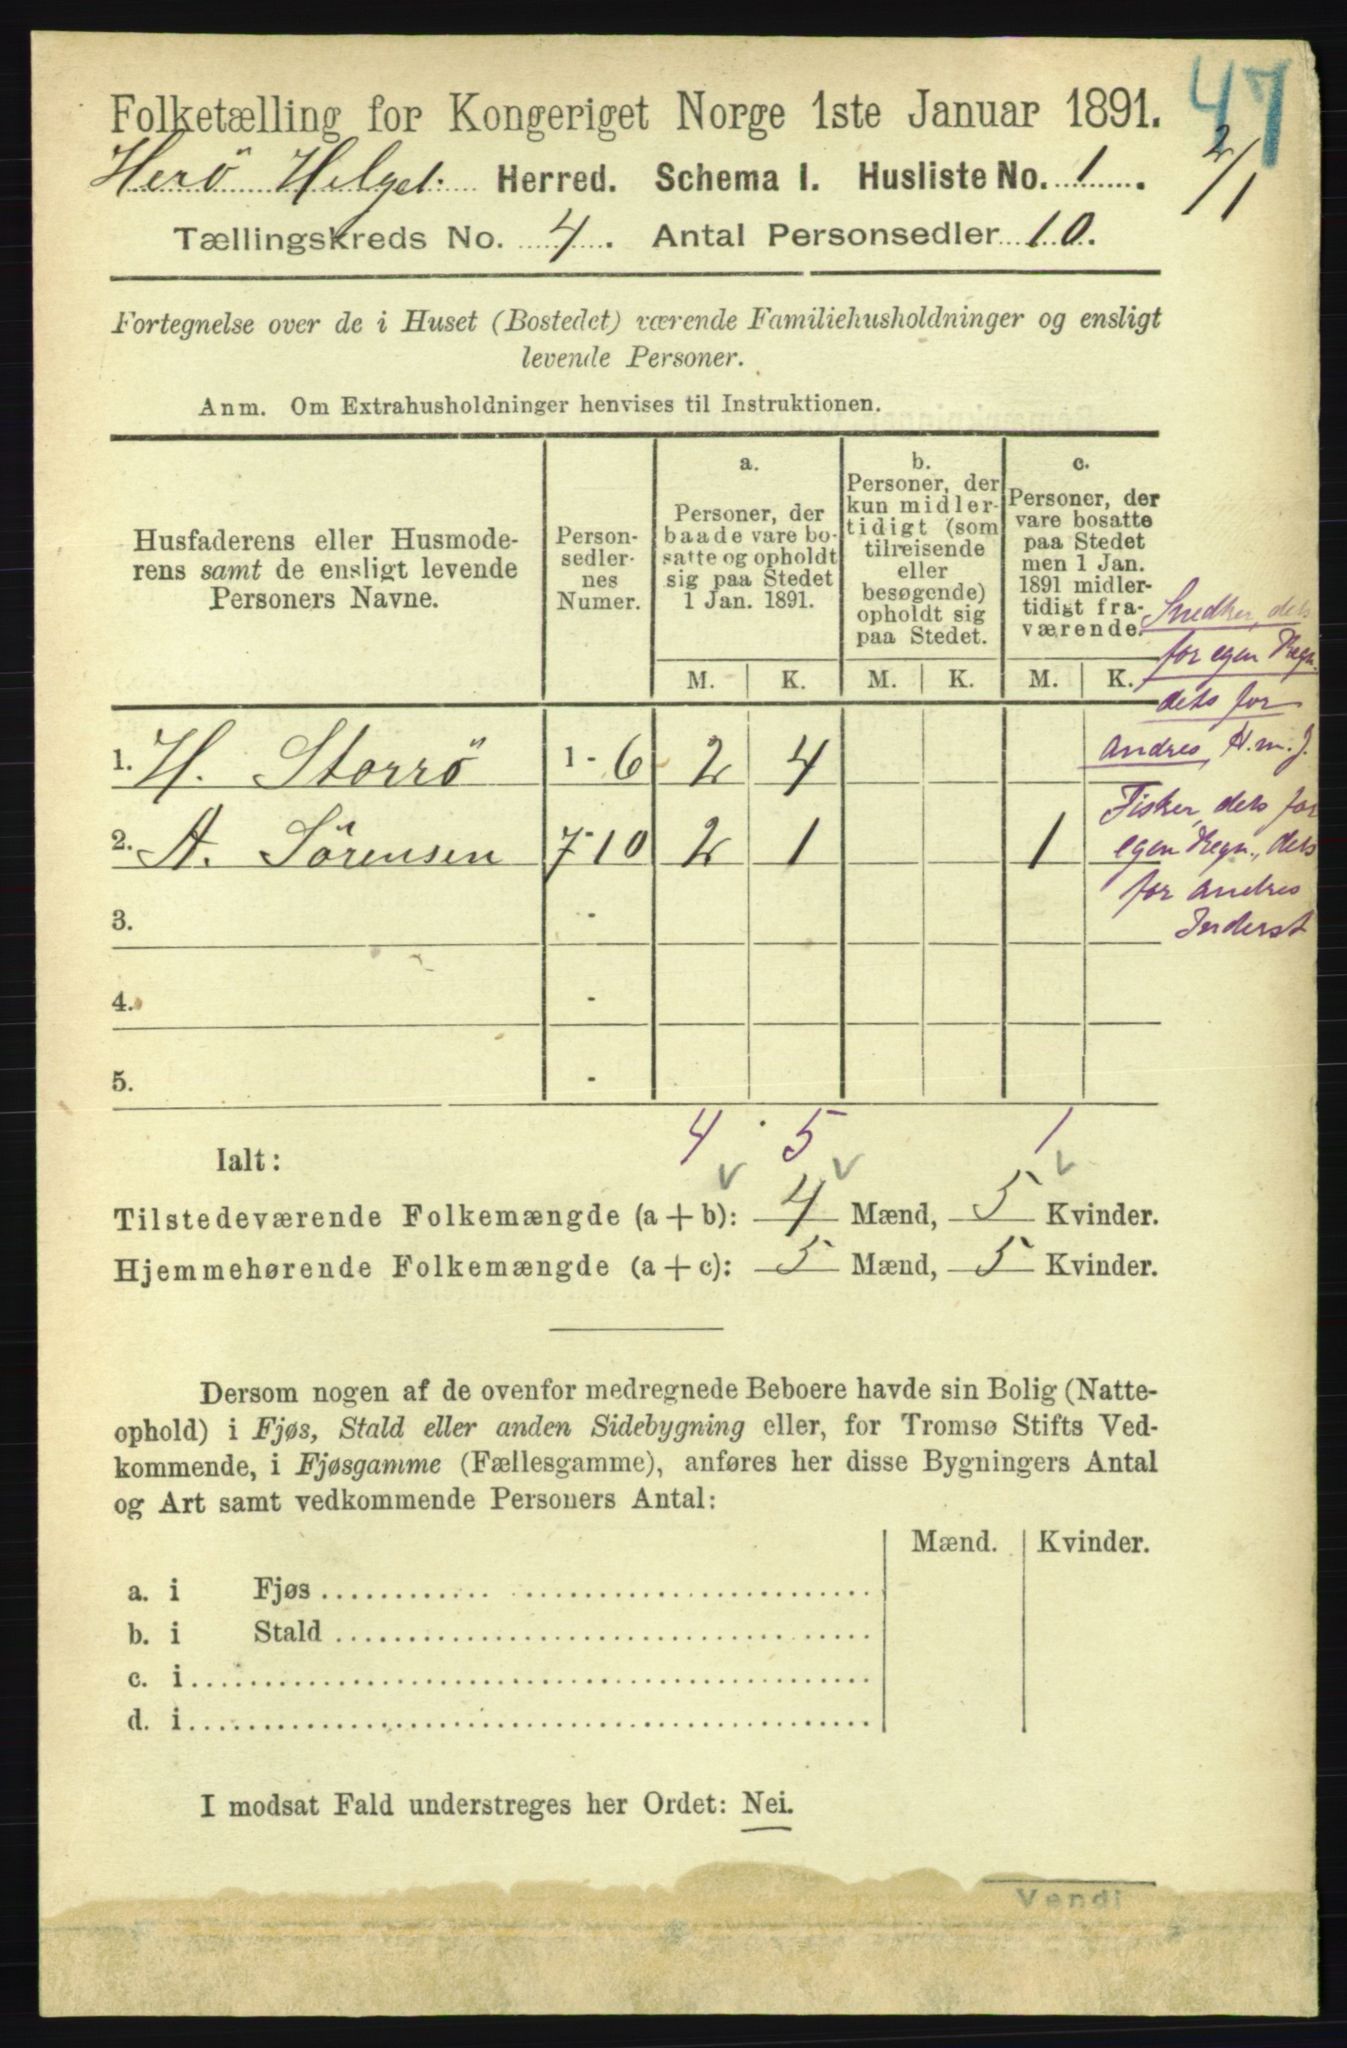 47
Folketælling for Kongeriget Norge 1ste Januar 1891.
2/1
Herö Helgel. Herred. Schema I. Husliste No. 1.
Tællingskreds No. 4. Antal Personsedler 10.
Fortegnelse over de i Huset (Bostedet) værende Familiehusholdninger og ensligt
levende Personer.
Anm. Om Extrahusholdninger henvises til Instruktionen.
Husfaderens eller Husmode-
rens samt de ensligt levende
Personers Navne.
Person-
sedler-
nes
Numer.
a.
Personer, der
baade vare bo-
satte og opholdt
sig paa Stedet
1 Jan. 1891.
b.
Personer, der
kun midler-
tidigt (som
tilreisende
eller
besøgende)
opholdt sig
paa Stedet.
c.
Personer, der
vare bosatte
paa Stedet
men 1 Jan.
1891 midler-
tidigt fra-
værende.
M. K. M. K. M. K.
Snedker, dels
for egen Regn.
dels for
andres, H.m.J.
1. H. Storrö 1-6 2 4
Fisker, dels for
egen Regn., dels
for andres
Inderst
2. A. Sörensen 7-10 2 1 1
3. -
4. -
5. -
4 5 1
Ialt:
Tilstedeværende Folkemængde (a + b): 4 Mænd, 5 Kvinder.
Hjemmehørende Folkemængde (a + c): 5 Mænd, 5 Kvinder.
Dersom nogen af de ovenfor medregnede Beboere havde sin Bolig (Natte-
ophold) i Fjøs, Stald eller anden Sidebygning eller, for Tromsø Stifts Ved-
kommende, i Fjøsgamme (Fællesgamme), anføres her disse Bygningers Antal
og Art samt vedkommende Personers Antal:
Mænd. Kvinder.
a. i Fjøs
b. i Stald
c. i
d. i
I modsat Fald understreges her Ordet: Nei.
Vend!